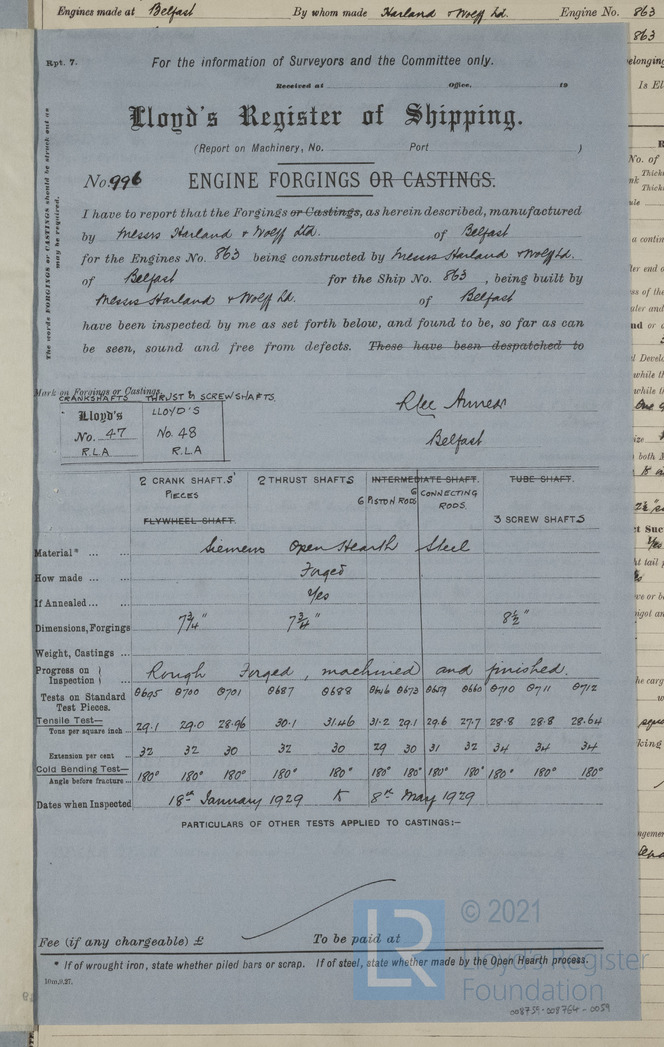 Engines made at Belfast By whom made Harland & Wolff Ld. Engine No. 863
863
Rpt. 7. For the information of Surveyors and the Committee only.
Received at Office. 19
Lloyd's Register of Shipping.
(Report on Machinery, No. Port )
No. 996 ENGINE FORGINGS OR CASTINGS.
The words FORGINGS or CASTINGS should be struck out as
may be required.
I have to report that the Forgings or Castings, as herein described, manufactured
by Messrs Harland & Wolff Ltd. of Belfast
for the Engines No. 863 being constructed by Messrs Harland & Wolff Ld.
of Belfast for the Ship No. 863, being built by
Messrs Harland & Wolff Ld. of Belfast
have been inspected by me as set forth below, and found to be, so far as can
be seen, sound and free from defects. These have been despatched to
Mark on Forgings or Castings.
CRANKSHAFTS THRUST & SCREWSHAFTS
Lloyd's LLOYD'S
No. 47 No. 48
R.L.A R.L.A
Belfast
2 CRANK SHAFT.S' 2 THRUST SHAFTS INTERMEDIATE SHAFT. TUBE SHAFT.
PIECES 6 PISTON RODS 6 CONNECTING RODS.
FLYWHEEL SHAFT. 3 SCREW SHAFTS
Material* ... ... Siemens Open Hearth Steel
How made ... Forged
If Annealed... ... Yes
Dimensions, Forgings 7¾" 7¾" 8½"
Weight, Castings ...
Progress on Inspection } ... Rough Forged, machined and finished.
Tests on Standard Test Pieces. 0695 0700 0701 0687 0688 0646 0673 0659 0660 0710 0711 0712
Tensile Test—
Tons per square inch ... 29.1 29.0 28.96 30.1 31.46 31.2 29.1 29.6 27.7 28.8 28.8 28.64
Extension per cent ... 32 32 30 32 30 29 30 31 32 34 34 34
Cold Bending Test—
Angle before fracture ... 180° 180° 180° 180° 180° 180° 180° 180° 180° 180° 180° 180°
Dates when Inspected 18th January 1929 to 8th May 1929
PARTICULARS OF OTHER TESTS APPLIED TO CASTINGS:–
Fee (if any chargeable) £ To be paid at
* If of wrought iron, state whether piled bars or scrap. If of steel, state whether made by the Open Hearth process.
10m,9,27.
LR
© 2021
Lloyd's Register
Foundation
008759-008764-0059